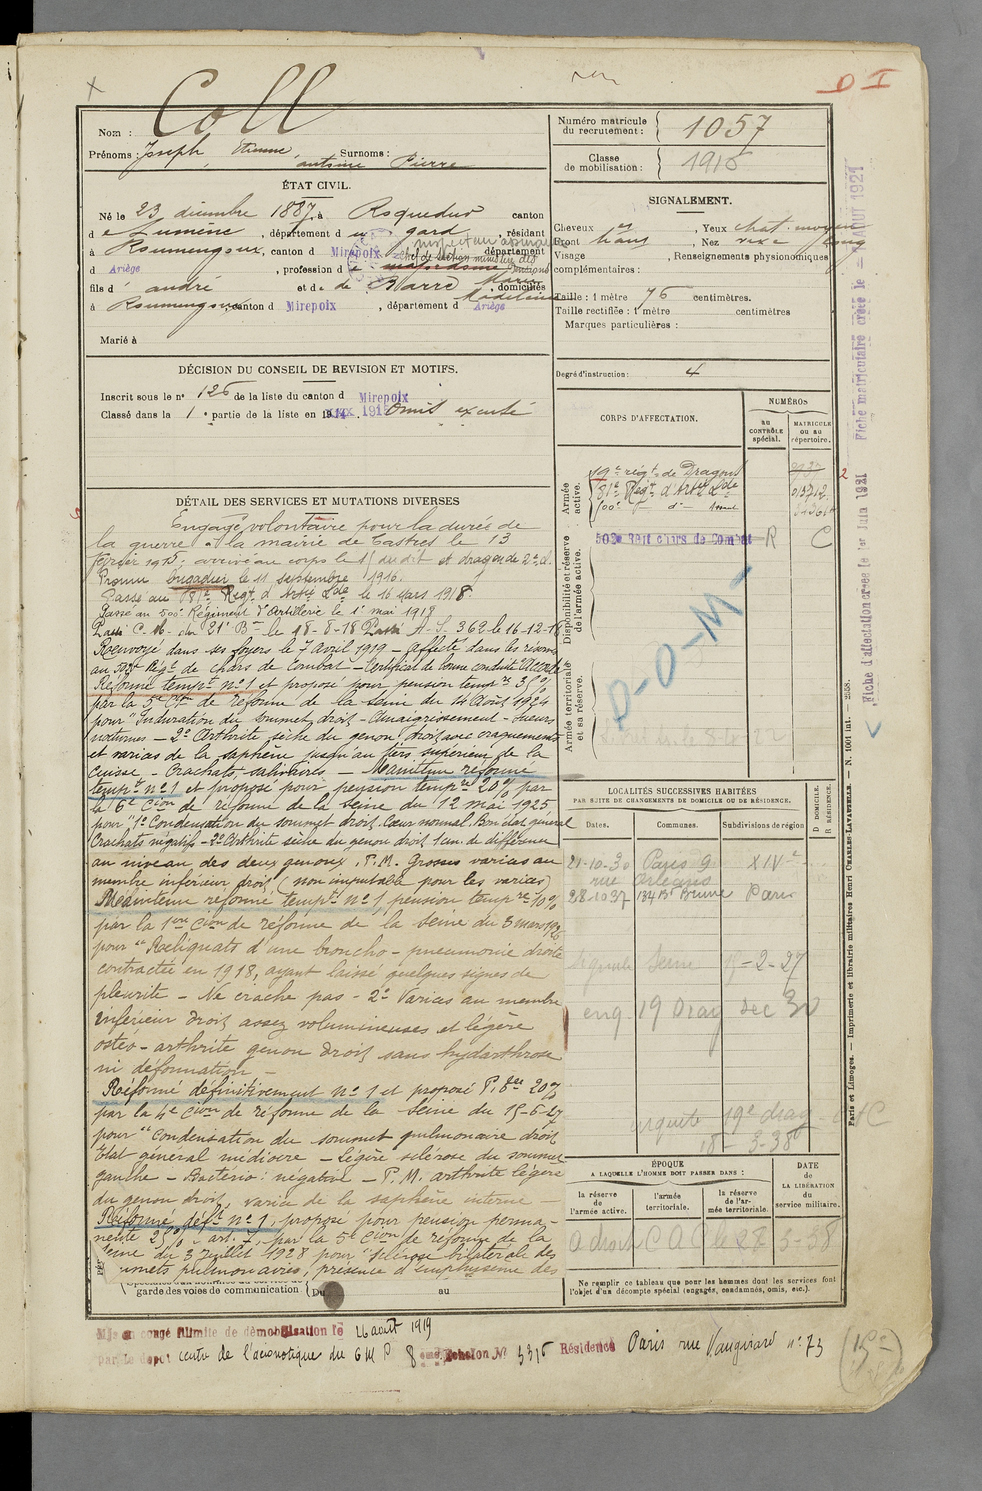 Coll
D I
Nom :
Prénoms : Joseph Etienne Surnoms :
antoine Pierre
Numéro matricule du recrutement : 1057
Classe de mobilisation : 1915
ÉTAT CIVIL.
Né le 23 décembre 1887, à Roquedur canton
de Sumène, département du gard, résidant
à Roumengoux, canton d Mirepoix département
d Ariège, profession de majordome
fils d' andré et de de Barre Marie Madeleine domiciliés
à Roumengoux canton d Mirepoix, département d Ariège
Marié à
SIGNALEMENT.
Cheveux Yeux chat. moyen
Front haut, Nez
Visage, Renseignements physionomiques
complémentaires :
Taille : 1 mètre 76 centimètres.
Taille rectifiée : 1 mètre centimètres
Marques particulières :
Degré d'instruction : 4
DÉCISION DU CONSEIL DE REVISION ET MOTIFS.
Inscrit sous le n° 126 de la liste du canton d Mirepoix
Classé dans la 1° partie de la liste en 1915. Omis excusé
CORPS D'AFFECTATION.
NUMÉROS
au CONTRÔLE spécial.
MATRICULE ou au répertoire.
Armée active.
19e régt de Dragons
81e Régt d'Artie Lde
500e d°
Disponibilité et réserve de l'armée active.
502e Regt chars de Combat R C
Armée territoriale et sa réserve.
D-O-M-
DÉTAIL DES SERVICES ET MUTATIONS DIVERSES
Engagé volontaire pour la durée de
la guerre à la mairie de Castres le 13
février 1915; arrivé au corps le dudit et dragon de 2e cl.
Promu brigadier le 11 septembre 1916.
Passé au 81e Régt d'Artie Lde le 16 Mars 1918
Passé au 500e Régiment d'Artillerie le 1er mai 1918
Passé C. M. du 21e Bon le 18-8-18 Passé A. S. 362 le 16-12-18
Renvoyé dans ses foyers le 7 avril 1919 - affecté dans les réserves
au 502e Régt de chars de Combat - Certificat de bonne conduite Accordé
Réformé tempre n° 1 et proposé pour pension tempre 35%
par la 5e Cion de réforme de la Seine du 14 Août 1924
pour "Induration du sommet droit - Amaigrissement - Sueurs
nocturnes - 2° Arthrite sèche du genou droit avec craquements
et varices de la saphène jusqu'au tiers supérieur de la
cuisse - Crachats, salivaires. - Maintenu réformé
tempre n° 1 et proposé pour pension tempre 20% par
la 6e Cion de réforme de la Seine du 12 mai 1925
pour "1° Condensation du sommet droit. Cœur normal. Bon état général
Crachats négatifs - 2° Arthrite sèche du genou droit 1 cm. de différence
au niveau des deux genoux. P.M. Grosses varices au
membre inférieur droit (non imputable pour les varices)
Maintenu réformé tempre n° 1, pension tempre 10%
par la 1ère Cion de réforme de la Seine du 3 mars 1926
pour "Reliquats d'une broncho-pneumonie droite
contractée en 1918, ayant laissé quelques signes de
pleurite - Ne crache pas - 2° Varices au membre
inférieur droit assez volumineuses et légère
ostéo-arthrite genou droit sans hydarthrose
ni déformation -
Réformé définitivement n° 1 et proposé P. Pte 20%
par la 4e Cion de réforme de la Seine du 15-6-27
pour "Condensation du sommet pulmonaire droit
Etat général médiocre - Légère sclérose du sommet
gauche - Bactério : négative - P.M. arthrite légère
du genou droit, varice de la saphène interne -
Réformé déft n° 1, proposé pour pension perma-
nente 25% art. 7, par la 5e Cion de réforme de la
Seine du 3 Juillet 1928 pour "sclérose bilatérale des
sommets pulmonaires, présence d'emphysème des
garde des voies de communication { Du au
LOCALITÉS SUCCESSIVES HABITÉES
PAR SUITE DE CHANGEMENTS DE DOMICILE OU DE RÉSIDENCE.
Dates. Communes. Subdivisions de région
D DOMICILE. R RÉSIDENCE.
21-10-30 Paris 9 XIVe
rue Orléans
28-10 37 134 Bd Brune Paris
Signalé Seine 15-2-27
eng. 19 Drag dec 30
enquete 19e drag
18-3-38
ÉPOQUE
A LAQUELLE L'HOMME DOIT PASSER DANS :
la réserve de l'armée active.
l'armée territoriale.
la réserve de l'armée territoriale.
DATE de LA LIBÉRATION du service militaire.
a droit C A C
Ne remplir ce tableau que pour les hommes dont les services font
l'objet d'un décompte spécial (engagés, condamnés, omis, etc.).
Mis en congé illimité de démobilisation le 26 août 1919
par le dépôt centre de l'aéronautique du G M P 8eme échelon N° 3316 Résidence Paris rue Vaugirard n° 73
Fiche d'affectation créée le 1er Juin 1921 Fiche matriculaire créée le AOUT 1921
Paris et Limoges. — Imprimerie et librairie militaires Henri CHARLES-LAVAUZELLE. — N. 1001 int. — 2558.